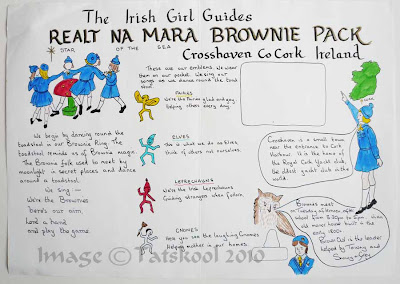 The Irish Girl Guides
REALT NA MARA BROWNIE PACK
STAR OF THE SEA
Crosshaven Co Cork Ireland
These are our emblems. We wear
them on our pocket. We sing our
songs as we dance round the toad
stool.
FAIRIES
We're the Fairies glad and gay
helping others every day.
We begin by dancing round the
toadstool in our Brownie Ring. The
toadstool reminds us of Brownie magic.
The Brownie folk used to meet by
moonlight in secret places and dance
around a toadstool.
We sing :-
We're the Brownies
Here's our aim
Lend a hand
and play the game.
ELVES
this is what we do as Elves
think of others not ourselves.
LEPRECHAUNS
We're the Leprechauns
Guiding strangers when forlorn.
GNOMES
Here you see the laughing Gnomes
Helping mother in our homes.
Crosshaven is a small town
near the entrance to Cork
Harbour. It is the home of
the Royal Cork Yacht club,
the oldest yacht club in the
world.
Brownies meet
on Tuesday afternoon after
school from 3.30pm to 5pm in an
old manor house built in the
early
Brown Owl is the leader
helped by Tawny and
Snowy Owl
Image © Patskool 2010